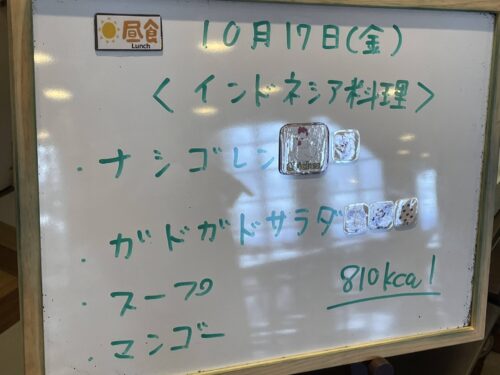 昼食
Lunch
10月17日(金)
<インドネシア料理>
・ナシゴレン
・ガドガドサラダ
・スープ
・マンゴー
810kcal